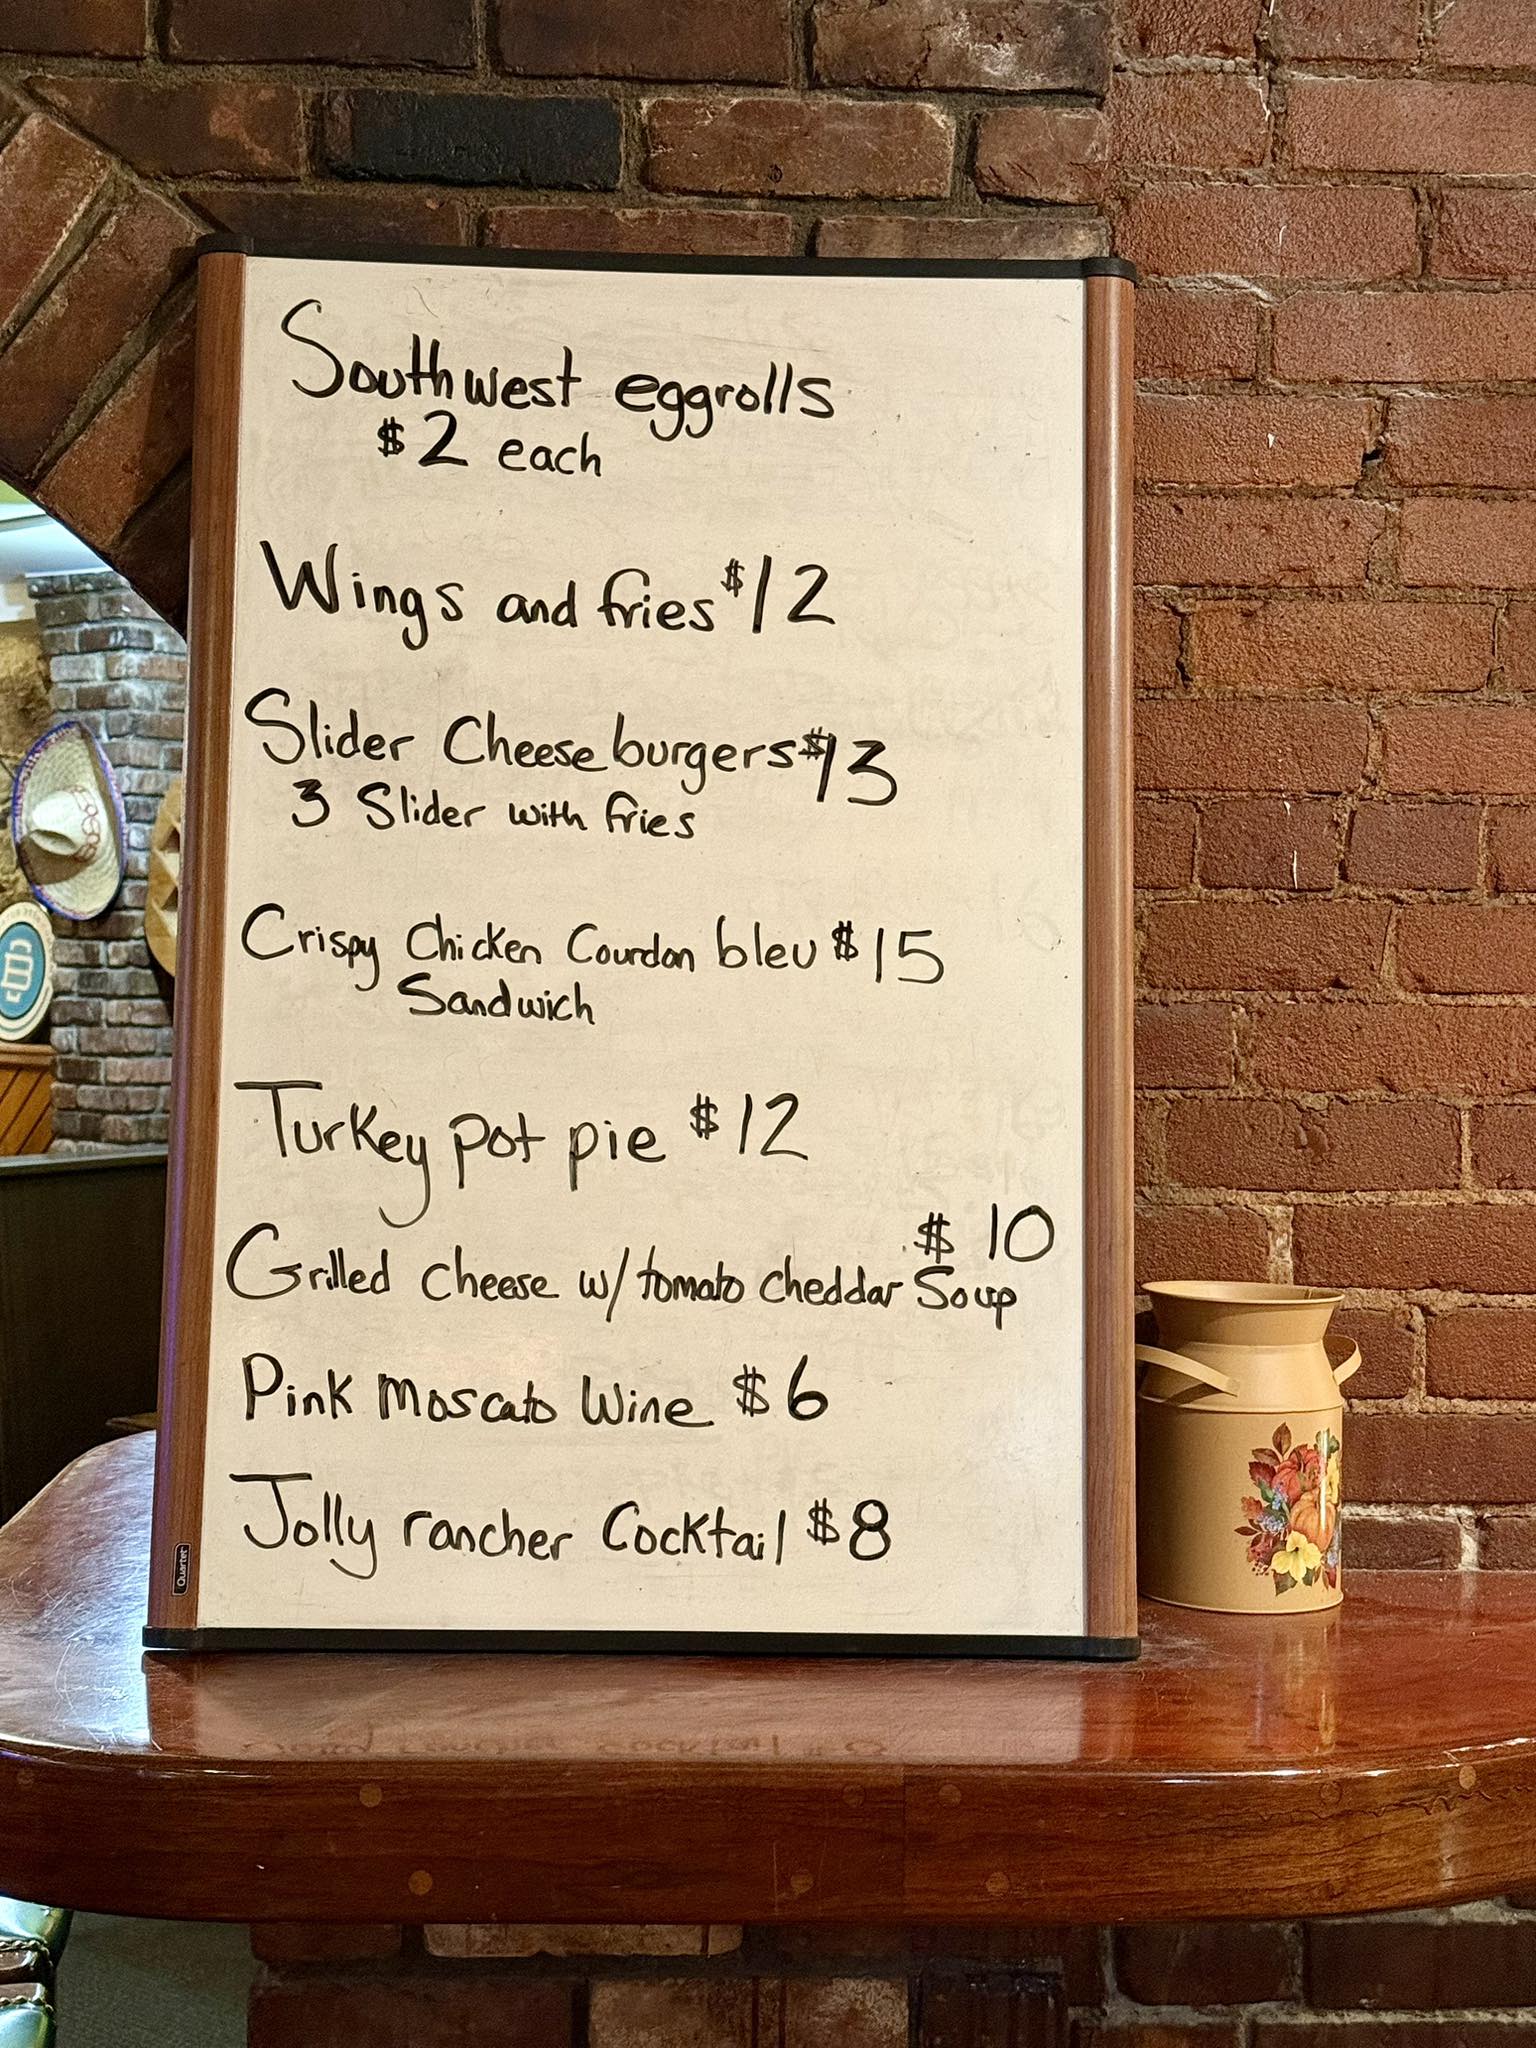 Southwest eggrolls
$2 each
Wings and fries $12
Slider Cheeseburgers $13
3 Slider with fries
Crispy Chicken Courdon bleu $15
Sandwich
Turkey pot pie $12
$10
Grilled cheese w/ tomato cheddar Soup
Pink Moscato Wine $6
Jolly rancher Cocktail $8
Quartet